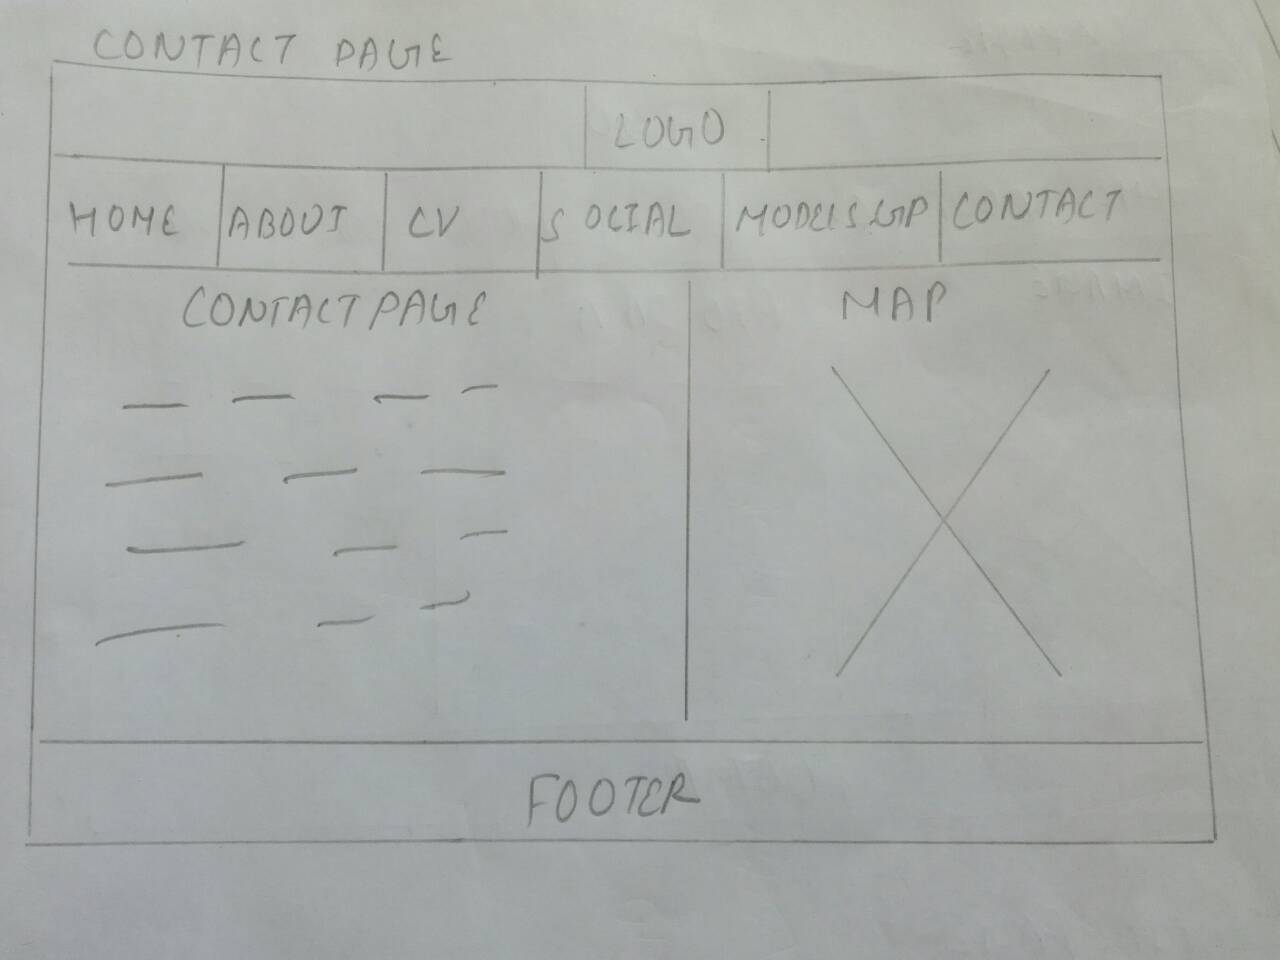 CONTACT PAGE
LOGO
HOME ABOUT CV SOCIAL CONTACT
CONTACT PAGE MAP
FOOTER